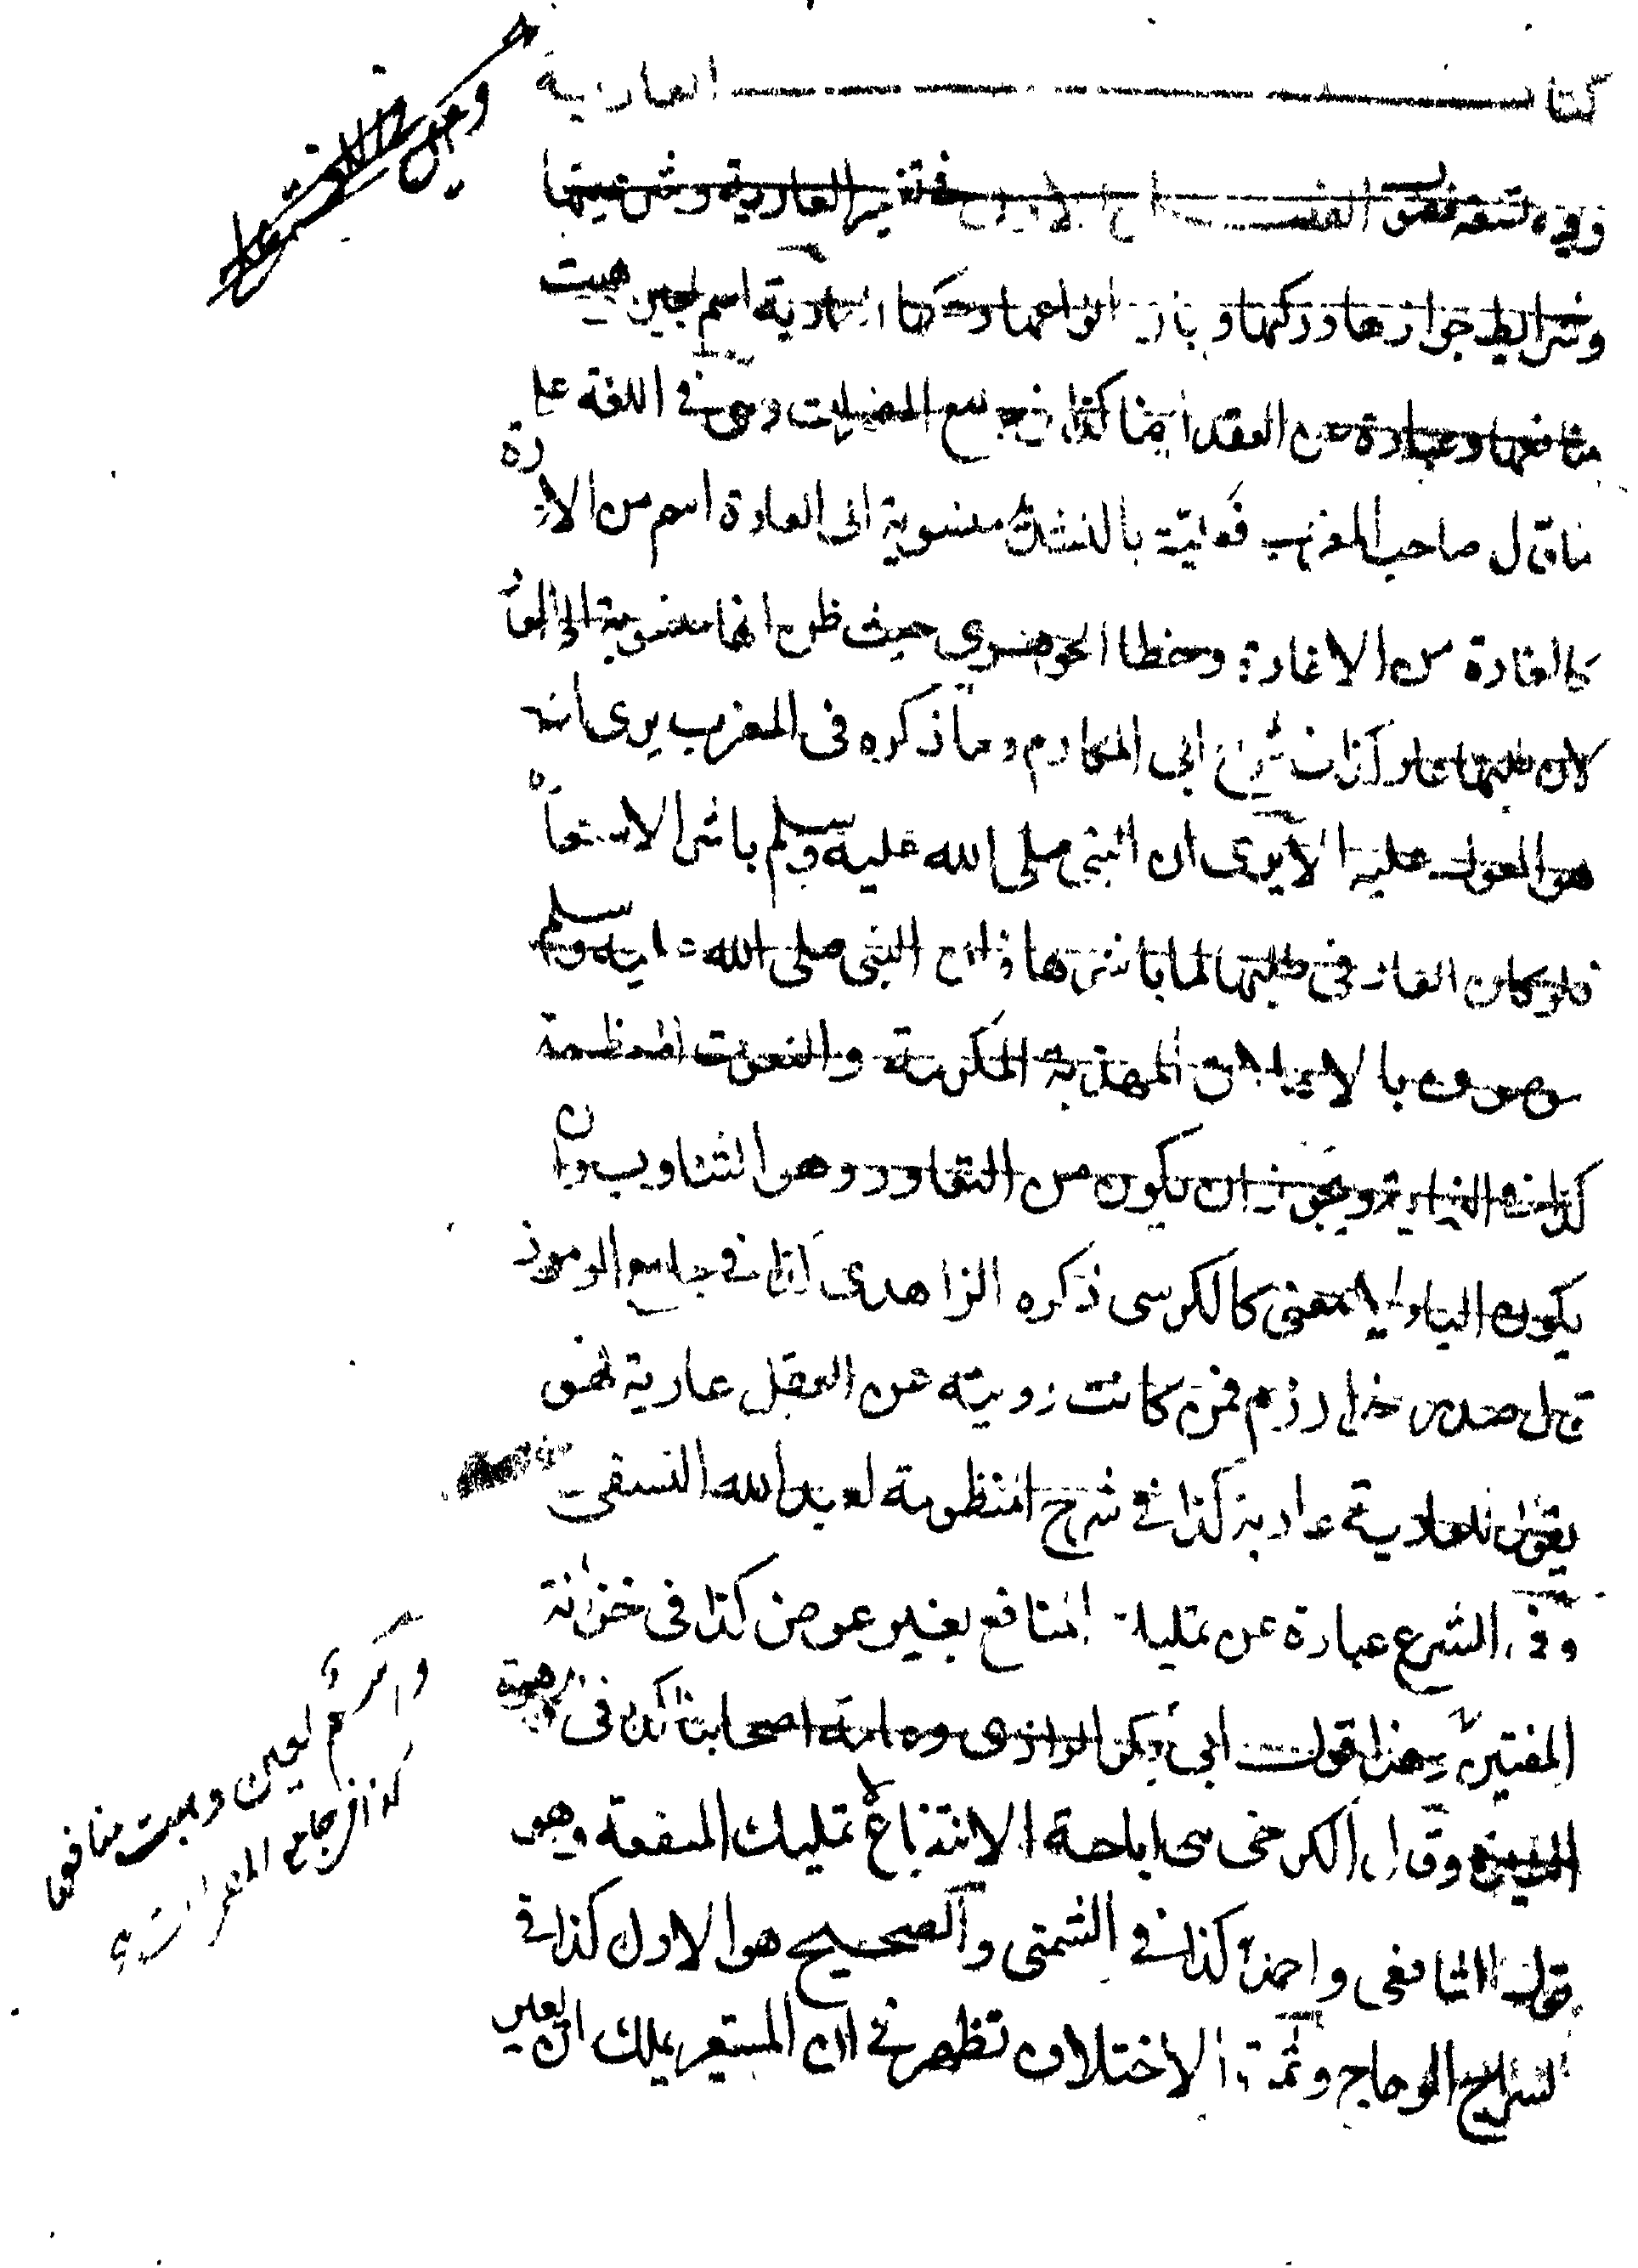 كتاب العارية
وفيه تسعة فصول الفصل الاول في تفسير العارية وشرعيتها
وشرائط جوازها وركنها وبيان انواعها وحكمها العارية اسم لعين هيبت
منافعها وعبارة عن العقد ايضا كذا في جامع المضمرات وهي في اللغة على
ما قال صاحب المغرب فَعليّة بالتشديد منسوبة الى العارة اسم من الاعارة
كالغارة من الاغارة وخطا الجوهري حيث ظن انها منسوبة الى العار
لان طلبها عار كذا في شرح ابي المكارم وما ذكره في المغرب يرى انه
هو المعول عليه الا يرى ان النبي صلى الله عليه وسلم باشر الاستعارة
فلو كان العار في طلبها لما باشرها فان النبي صلى الله عليه وسلم
موصوف بالاخلاق المهذبة المكرمة والنعوت المعظمة
كذا في النهاية ويجوز ان يكون من التعاور وهو التناوب وان
يكون الياء لا لمعنى كالكرسي ذكره الزاهدي كذا في جامع الرموز
قال صدر خوارزم فمن كانت رويته عن العقل عارية فهو
يقول للعارية عارية كذا في شرح المنظومة لعبد الله النسفي
وفي الشرع عبارة عن تمليك المنافع بغير عوض كذا في خزانة
المفتين وهذا قول ابي بكر الرازي وعامة اصحابنا كذا في
وقال الكرخي هي اباحة الانتفاع لا تمليك المنفعة وهو
قول الشافعي واحمد كذا في الشمني والصحيح هو الاول كذا في
السراج الوهاج وثمرة الاختلاف تظهر في ان المستعير يملك ان يعير
واسم لعين وهبت منافعها
كذا في جامع المضمرات